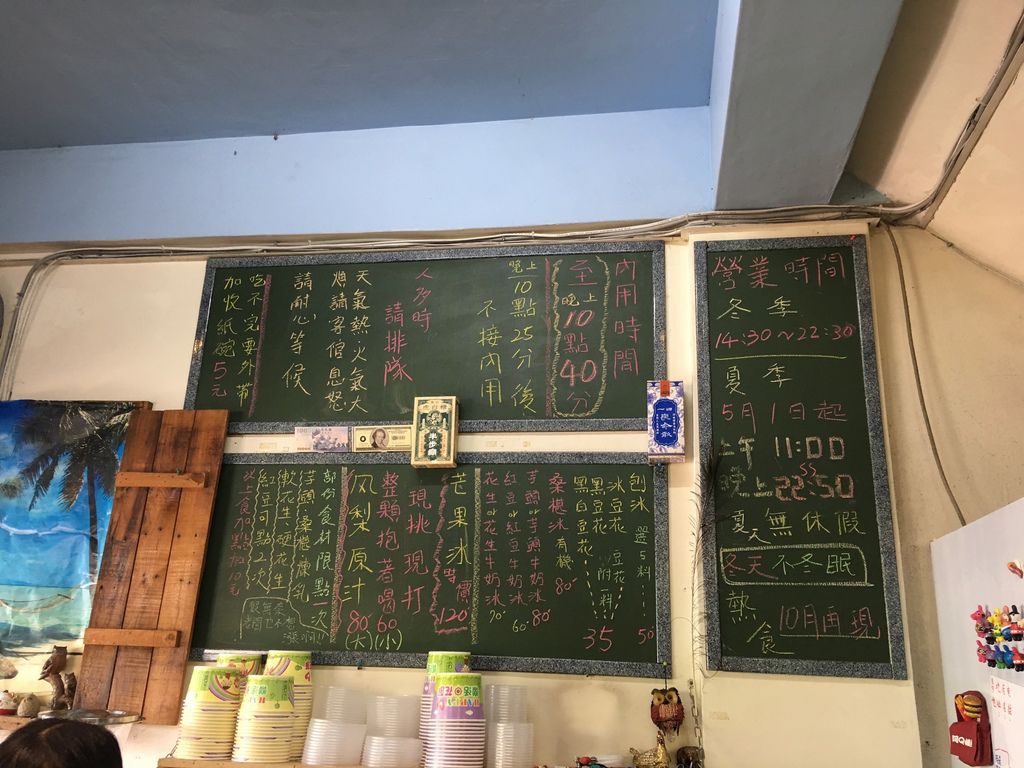 內用時間
至晚上10點40分
晚上10點25分後
不接內用
人多時
請排隊
天氣熱,火氣大
煩請客倌息怒
請耐心等候
吃不完要外帶
加收紙碗5元
刨冰 選5料 50
冰豆花 豆花
黑豆花 附一料 35
黑白豆花
桑椹冰 有機 80
芋頭or芋頭牛奶冰 80
紅豆or紅豆牛奶冰 60
花生or花生牛奶冰 70
芒果冰 時價 120
現挑現打
整顆抱著喝60(小)
鳳梨原汁80(大)
部份食材限點一次
紅豆可點2次
以上食加點加10元
營業時間
冬季
14:30~22:30
夏季
5月1日起
上午 11:00
晚上 22:50
夏天無休假
冬天不冬眠
熱食
10月再現